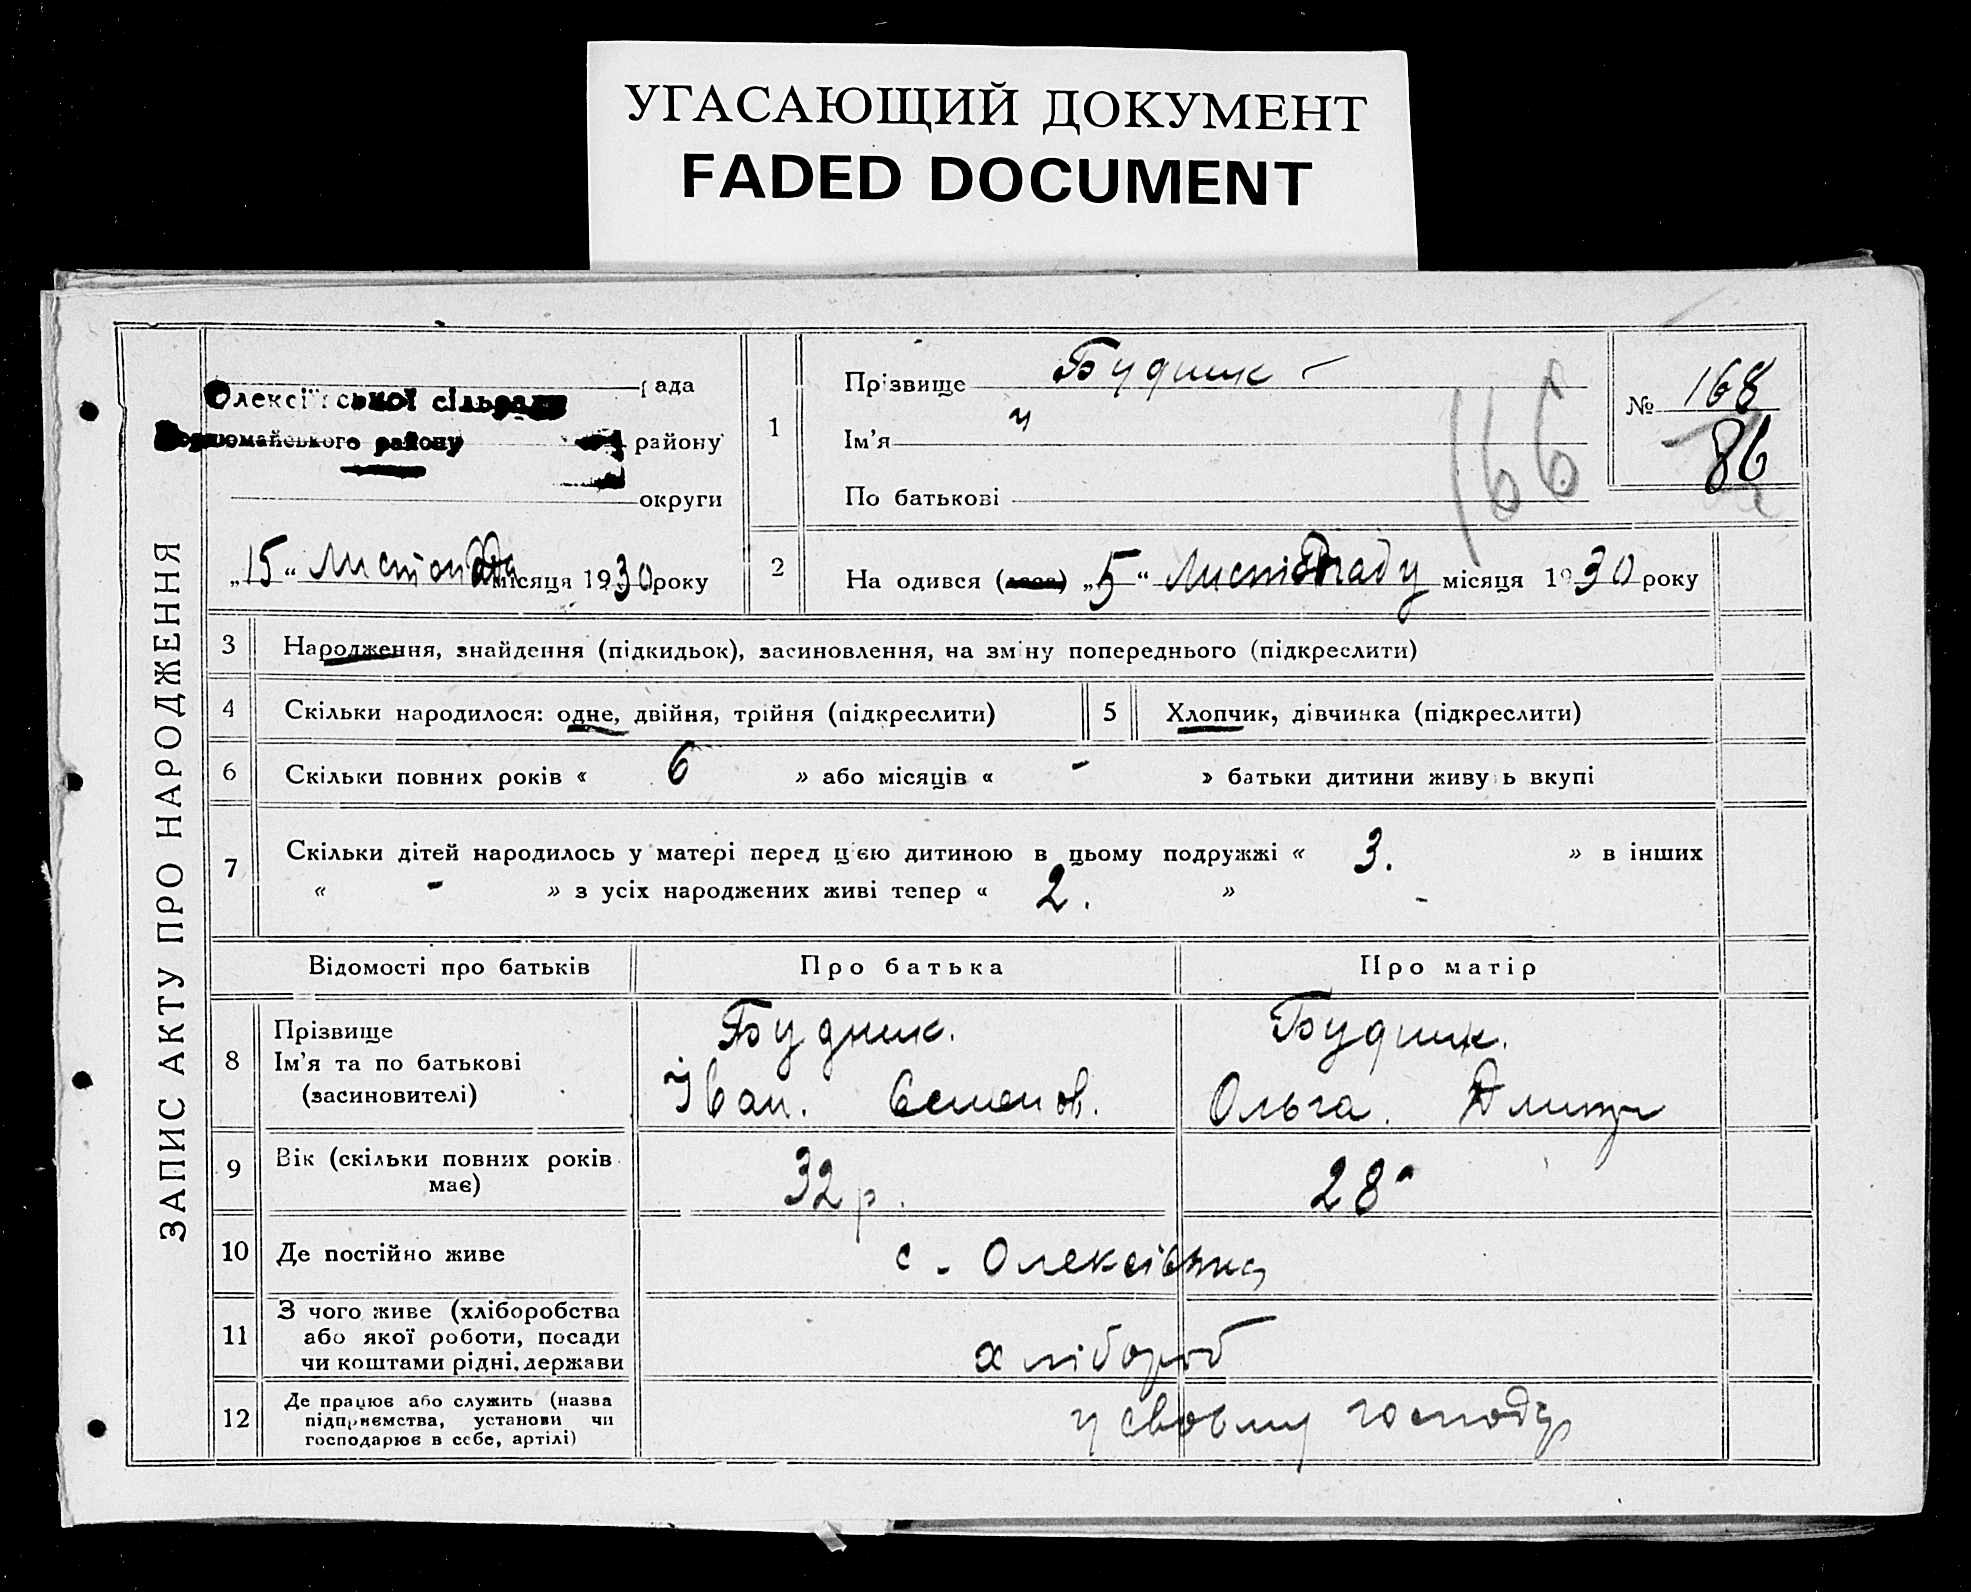 УГАСАЮЩИЙ ДОКУМЕНТ
FADED DOCUMENT
ЗАПИС АКТУ ПРО НАРОДЖЕННЯ
рада
Олексіїської сільради
району району
округи
„15“ Листопада місяця 1930 року
1
Прізвище Будник
Ім’я
По батькові
166
№ 168
86
2
На одився ( ) „5“ Листопаду місяця 1930 року
3 Народження, знайдення (підкидьок), засиновлення, на зміну попереднього (підкреслити)
4 Скільки народилося: одне, двійня, трійня (підкреслити)
5 Хлопчик, дівчинка (підкреслити)
6 Скільки повних років « 6 » або місяців « - » батьки дитини живуть вкупі
7 Скільки дітей народилось у матері перед цією дитиною в цьому подружжі « 3. » в інших
« - » з усіх народжених живі тепер « 2. » -
Відомості про батьків Про батька Про матір
8 Прізвище Будник. Будник.
Ім’я та по батькові Іван. Семенов. Ольга.
(засиновителі)
9 Вік (скільки повних років 32 р. 28
має)
10 Де постійно живе с. Олексієвка
11 З чого живе (хліборобства
або якої роботи, посади
чи коштами рідні, держави хлібороб
12 Де працює або служить (назва
підприємства, установи чи
господарює в себе, артілі) у своєму господ